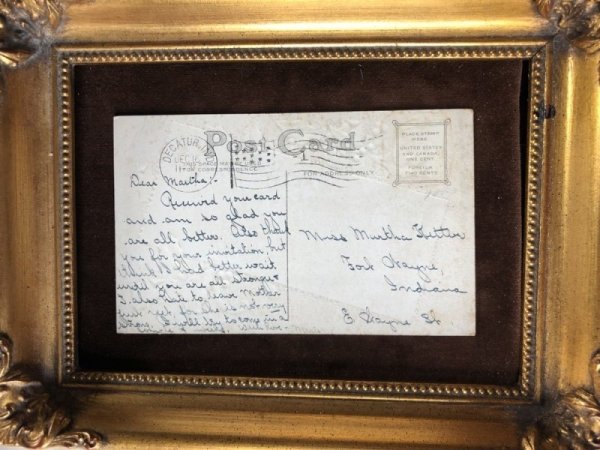 Post Card
DECATUR, IND.
DEC
1
THIS SPACE MAY BE
FOR CORRESPONDENCE
FOR ADDRESS ONLY
PLACE STAMP
HERE
UNITED STATES
AND CANADA,
ONE CENT.
FOREIGN
TWO CENTS
Dear Martha:-
Received your card
and am so glad you
are all better. Also thank
you for your invitation, but
think I had better wait
until you are all stronger
I also hate to leave Mother
just yet, for she is not very
strong. I will try to come in a
With love.
Miss Martha Fetter
Fort Wayne,
Indiana
E Wayne St